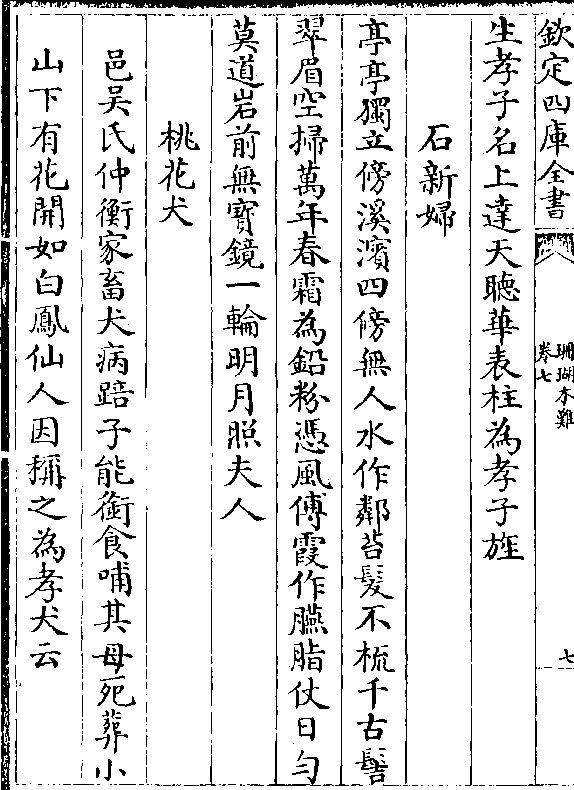 欽定四庫全書
珊瑚木難
卷七
七
生孝子名上達天聽華表柱為孝子旌
石新婦
亭亭獨立傍溪濱四傍無人水作鄰苔髮不梳千古髻
翠眉空掃萬年春霜為鉛粉憑風傅霞作臙脂仗日勻
莫道岩前無寶鏡一輪明月照夫人
桃花犬
邑吳氏仲衡家畜犬病踣子能銜食哺其母死葬小
山下有花開如白鳳仙人因稱之為孝犬云